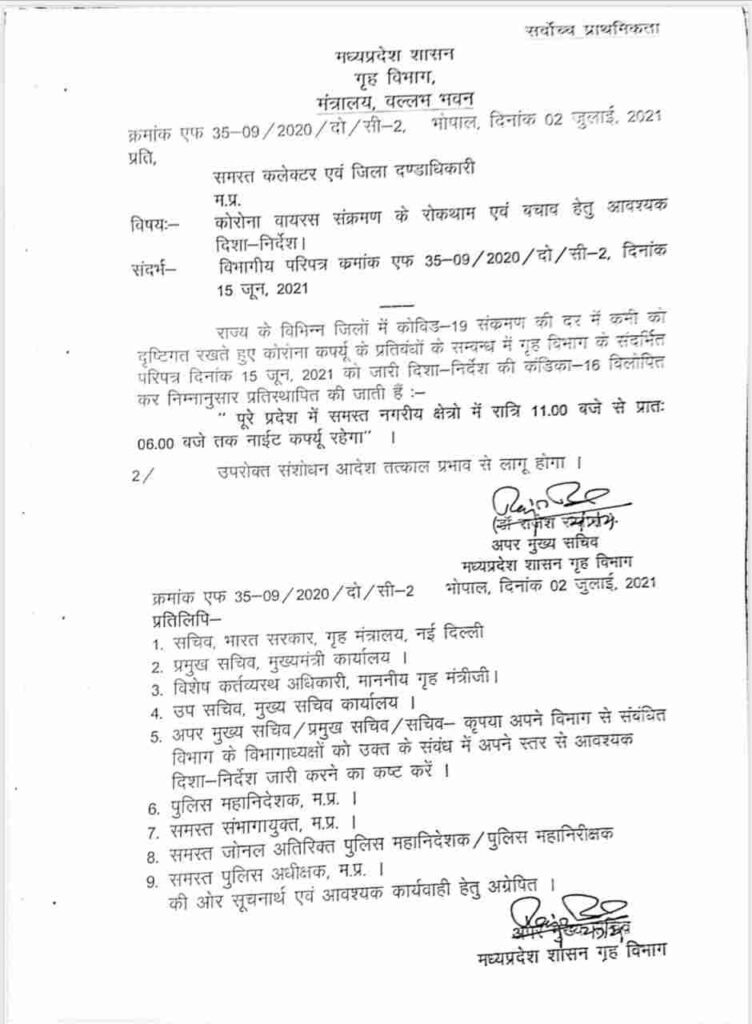 सर्वोच्च प्राथमिकता
मध्यप्रदेश शासन
गृह विभाग,
मंत्रालय, वल्लभ भवन
क्रमांक एफ 35-09/2020/दो/सी-2, भोपाल, दिनांक 02 जुलाई, 2021
प्रति,
समस्त कलेक्टर एवं जिला दण्डाधिकारी
म.प्र.
विषयः- कोरोना वायरस संक्रमण के रोकथाम एवं बचाव हेतु आवश्यक
दिशा-निर्देश।
संदर्भ- विभागीय परिपत्र कमांक एफ 35-09/2020/दो/सी-2, दिनांक
15 जून, 2021
राज्य के विभिन्न जिलों में कोविड-19 संकमण की दर में कमी को
दृष्टिगत रखते हुए कोरोना कर्फ्यू के प्रतिबंधों के सम्बन्ध में गृह विभाग के संदर्भित
परिपत्र दिनांक 15 जून, 2021 को जारी दिशा-निर्देश की कंडिका-16 विलोपित
कर निम्नानुसार प्रतिस्थापित की जाती हैं :-
" पूरे प्रदेश में समस्त नगरीय क्षेत्रो में रात्रि 11.00 बजे से प्रातः
06.00 बजे तक नाईट कर्फ्यू रहेगा" ।
2/ उपरोक्त संशोधन आदेश तत्काल प्रभाव से लागू होगा ।
(डॉ राजेश
अपर मुख्य सचिव
मध्यप्रदेश शासन गृह विभाग
क्रमांक एफ 35-09/2020/दो/सी-2 भोपाल, दिनांक 02 जुलाई, 2021
प्रतिलिपि-
1. सचिव, भारत सरकार, गृह मंत्रालय, नई दिल्ली
2. प्रमुख सचिव, मुख्यमंत्री कार्यालय ।
3. विशेष कर्तव्यस्थ अधिकारी, माननीय गृह मंत्रीजी।
4. उप सचिव, मुख्य सचिव कार्यालय ।
5. अपर मुख्य सचिव/प्रमुख सचिव/सचिव- कृपया अपने विभाग से संबंधित
विभाग के विभागाध्यक्षों को उक्त के संबंध में अपने स्तर से आवश्यक
दिशा-निर्देश जारी करने का कष्ट करें ।
6. पुलिस महानिदेशक, म.प्र. ।
7. समस्त संभागायुक्त, म.प्र. ।
8. समस्त जोनल अतिरिक्त पुलिस महानिदेशक/पुलिस महानिरीक्षक
9. समस्त पुलिस अधीक्षक, म.प्र. ।
की ओर सूचनार्थ एवं आवश्यक कार्यवाही हेतु अग्रेषित ।
अपर मुख्य सचिव
मध्यप्रदेश शासन गृह विभाग